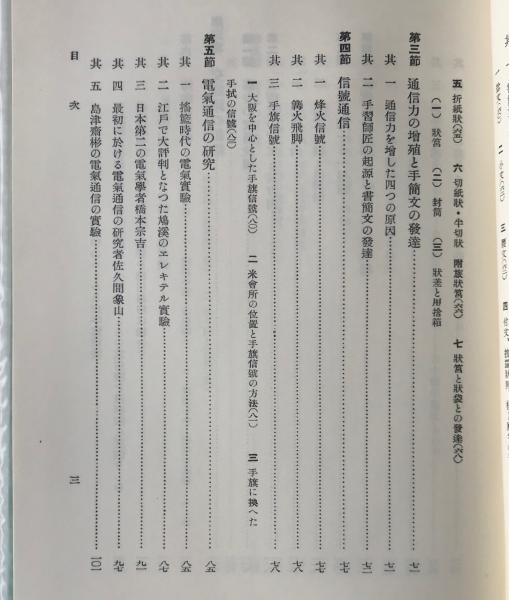 五 折紙狀(六五) 六 切紙狀・牛切狀 附旅狀筥(六六) 七 狀筥と狀袋との發達(六八)
(一) 狀筥 (二) 封筒 (三) 狀差と用捨箱
第三節 通信力の增殖と手簡文の發達……七一
其 一 通信力を增した四つの原因……七一
其 二 手習師匠の起源と書簡文の發達……七二
第四節 信號通信……七七
其 一 烽火信號……七七
其 二 篝火飛脚……七八
其 三 手旗信號……七八
一 大阪を中心とした手旗信號(八〇) 二 米會所の位置と手旗信號の方法(八二) 三 手旗に換へた
手拭の信號(八三)
第五節 電氣通信の硏究……八五
其 一 搖籃時代の電氣實驗……八五
其 二 江戶で大評判となつた鳩溪のエレキテル實驗……八七
其 三 日本第二の電氣學者橋本宗吉……九一
其 四 最初に於ける電氣通信の硏究者佐久間象山……九七
其 五 島津齋彬の電氣通信の實驗……一〇一
目 次
三